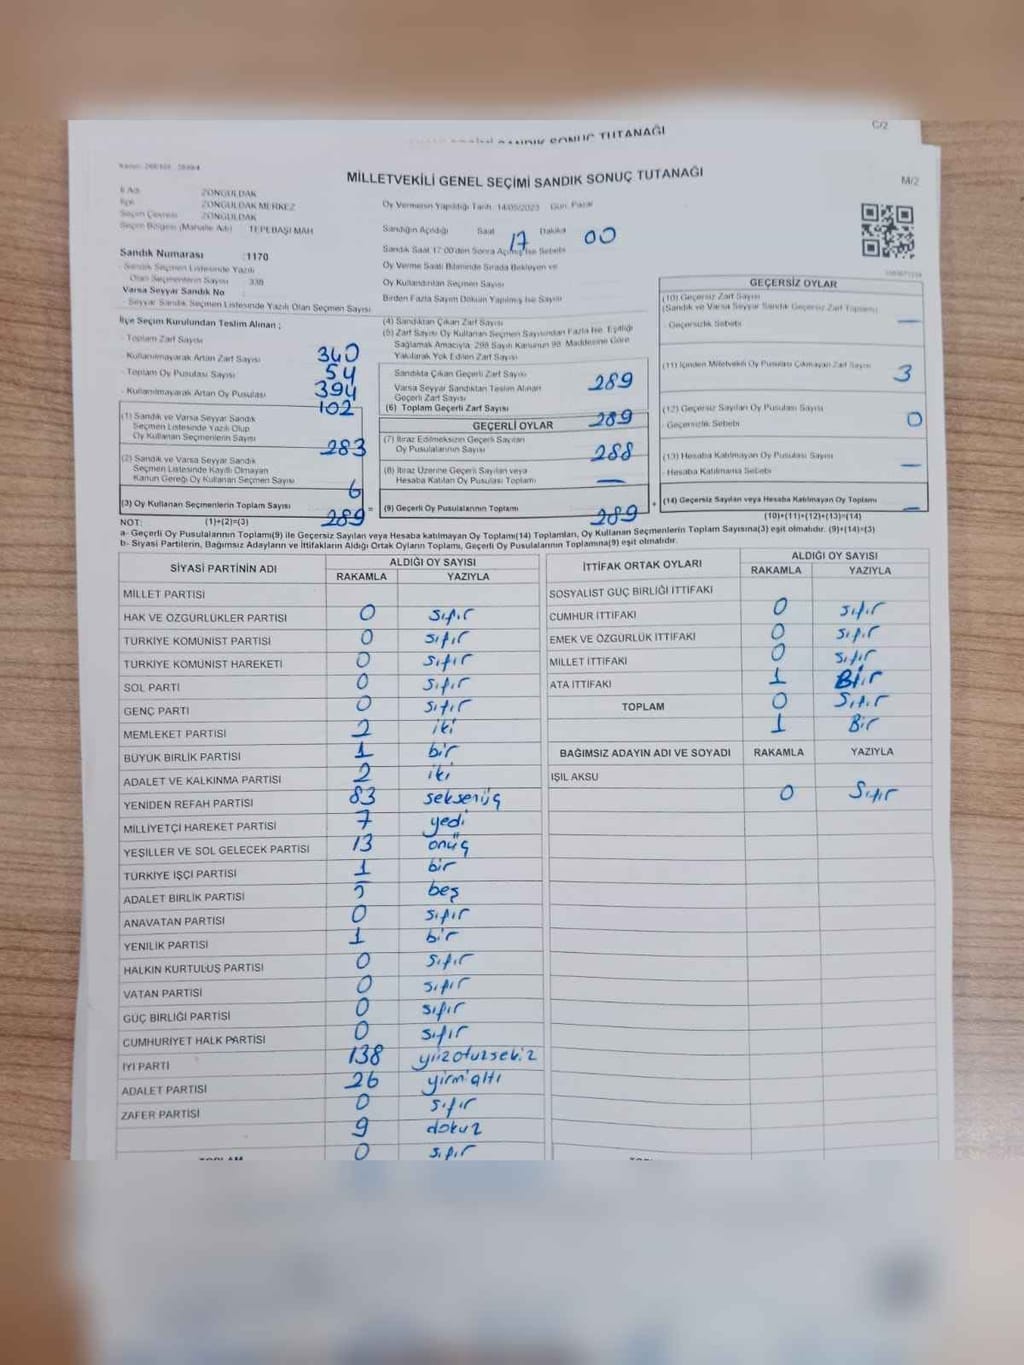 SANDIK SONUÇ TUTANAĞI
C/2
MİLLETVEKİLİ GENEL SEÇİMİ SANDIK SONUÇ TUTANAĞI
M/2
İl Adı ZONGULDAK
İlçe ZONGULDAK MERKEZ
Seçim Çevresi ZONGULDAK
Seçim Bölgesi (Mahalle Adı) TEPEBAŞI MAH
Oy Vermenin Yapıldığı Tarih 14/05/2023 Gün Pazar
Sandığın Açıldığı Saat 17 Dakika 00
Sandık Saat 17:00'den Sonra Açılmış İse Sebebi
Oy Verme Saati Bitiminde Sırada Bekleyen ve
Oy Kullandırılan Seçmen Sayısı
Birden Fazla Sayım Döküm Yapılmış İse Sayısı
Sandık Numarası :1170
Sandık Seçmen Listesinde Yazılı
Olan Seçmenlerin Sayısı 338
Varsa Seyyar Sandık No
Seyyar Sandık Seçmen Listesinde Yazılı Olan Seçmen Sayısı
İlçe Seçim Kurulundan Teslim Alınan ;
Toplam Zarf Sayısı 340
Kullanılmayarak Artan Zarf Sayısı 54
Toplam Oy Pusulası Sayısı 394
Kullanılmayarak Artan Oy Pusulası 102
(1) Sandık ve Varsa Seyyar Sandık
Seçmen Listesinde Yazılı Olup
Oy Kullanan Seçmenlerin Sayısı 283
(2) Sandık ve Varsa Seyyar Sandık
Seçmen Listesinde Kayıtlı Olmayan
Kanun Gereği Oy Kullanan Seçmen Sayısı 6
(3) Oy Kullanan Seçmenlerin Toplam Sayısı 289
(1)+(2)=(3)
(4) Sandıktan Çıkan Zarf Sayısı
(5) Zarf Sayısı Oy Kullanan Seçmen Sayısından Fazla İse, Eşitliği
Sağlamak Amacıyla, 298 Sayılı Kanunun 98. Maddesine Göre
Yakılarak Yok Edilen Zarf Sayısı
Sandıkta Çıkan Geçerli Zarf Sayısı 289
Varsa Seyyar Sandıktan Teslim Alınan
Geçerli Zarf Sayısı
(6) Toplam Geçerli Zarf Sayısı 289
GEÇERLİ OYLAR
(7) İtiraz Edilmeksizin Geçerli Sayılan
Oy Pusulalarının Sayısı 288
(8) İtiraz Üzerine Geçerli Sayılan veya
Hesaba Katılan Oy Pusulası Toplamı —
= (9) Geçerli Oy Pusulalarının Toplamı 289 +
GEÇERSİZ OYLAR
(10) Geçersiz Zarf Sayısı
(Sandık ve Varsa Seyyar Sandık Geçersiz Zarf Toplamı) —
Geçersizlik Sebebi
(11) İçinden Milletvekili Oy Pusulası Çıkmayan Zarf Sayısı 3
(12) Geçersiz Sayılan Oy Pusulası Sayısı 0
Geçersizlik Sebebi
(13) Hesaba Katılmayan Oy Pusulası Sayısı —
Hesaba Katılmama Sebebi
(14) Geçersiz Sayılan veya Hesaba Katılmayan Oy Toplamı —
(10)+(11)+(12)+(13)=(14)
NOT:
a- Geçerli Oy Pusulalarının Toplamı(9) ile Geçersiz Sayılan veya Hesaba katılmayan Oy Toplamı(14) Toplamları, Oy Kullanan Seçmenlerin Toplam Sayısına(3) eşit olmalıdır. (9)+(14)=(3)
b- Siyasi Partilerin, Bağımsız Adayların ve İttifakların Aldığı Ortak Oyların Toplamı, Geçerli Oy Pusulalarının Toplamına(9) eşit olmalıdır.
SİYASİ PARTİNİN ADI ALDIĞI OY SAYISI
RAKAMLA YAZIYLA
MİLLET PARTİSİ
HAK VE ÖZGÜRLÜKLER PARTİSİ 0 sıfır
TÜRKİYE KOMÜNİST PARTİSİ 0 sıfır
TÜRKİYE KOMÜNİST HAREKETİ 0 sıfır
SOL PARTİ 0 sıfır
GENÇ PARTİ 0 sıfır
MEMLEKET PARTİSİ 2 iki
BÜYÜK BİRLİK PARTİSİ 1 bir
ADALET VE KALKINMA PARTİSİ 2 iki
YENİDEN REFAH PARTİSİ 83 seksenüç
MİLLİYETÇİ HAREKET PARTİSİ 7 yedi
YEŞİLLER VE SOL GELECEK PARTİSİ 13 onüç
TÜRKİYE İŞÇİ PARTİSİ 1 bir
ADALET BİRLİK PARTİSİ 5 beş
ANAVATAN PARTİSİ 0 sıfır
YENİLİK PARTİSİ 1 bir
HALKIN KURTULUŞ PARTİSİ 0 sıfır
VATAN PARTİSİ 0 sıfır
GÜÇ BİRLİĞİ PARTİSİ 0 sıfır
CUMHURİYET HALK PARTİSİ 0 sıfır
İYİ PARTİ 138 yüzotuzsekiz
ADALET PARTİSİ 26 yirmialtı
ZAFER PARTİSİ 0 sıfır
9 dokuz
0 sıfır
TOPLAM
İTTİFAK ORTAK OYLARI ALDIĞI OY SAYISI
RAKAMLA YAZIYLA
SOSYALİST GÜÇ BİRLİĞİ İTTİFAKI
CUMHUR İTTİFAKI 0 sıfır
EMEK VE ÖZGÜRLÜK İTTİFAKI 0 sıfır
MİLLET İTTİFAKI 0 sıfır
ATA İTTİFAKI 1 Bir
TOPLAM 0 Sıfır
1 Bir
BAĞIMSIZ ADAYIN ADI VE SOYADI RAKAMLA YAZIYLA
IŞIL AKSU
0 Sıfır